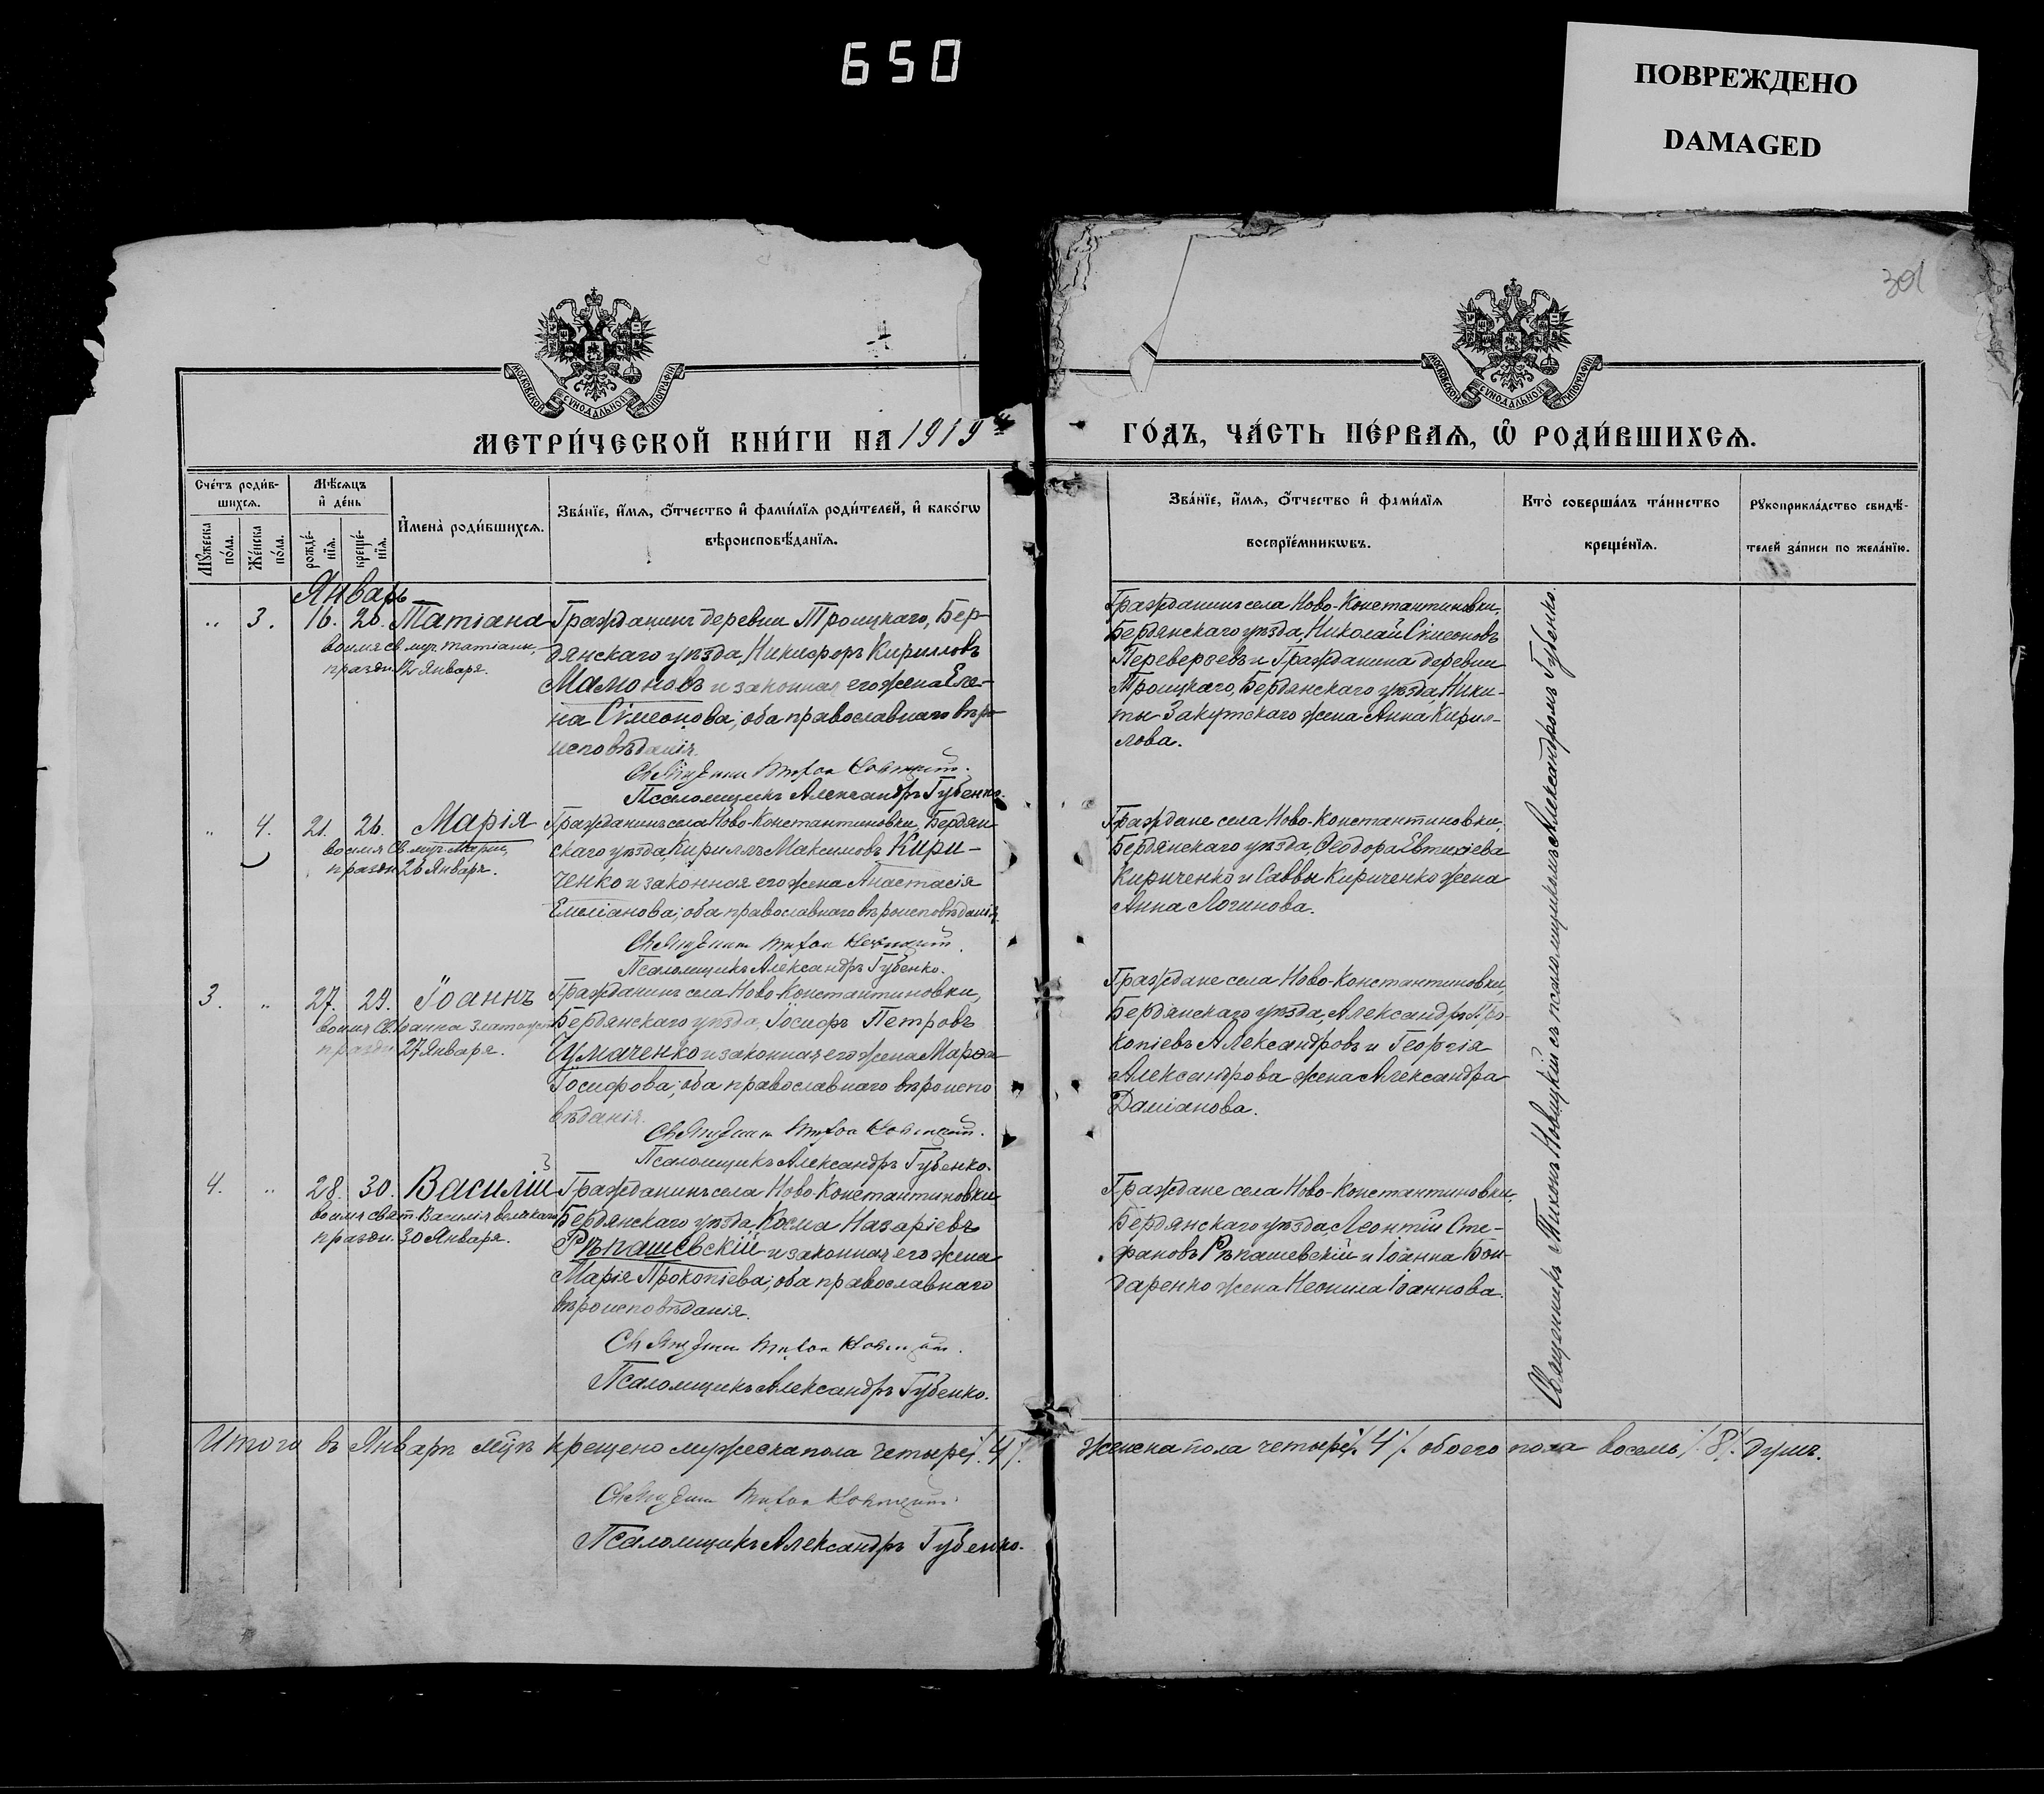 650
ПОВРЕЖДЕНО
DAMAGED
301
МОСКОВСКОЙ СѴНОДАЛЬНОЙ ТИПОГРАФІИ
МОСКОВСКОЙ СѴНОДАЛЬНОЙ ТИПОГРАФІИ
МЕТРИ́ЧЕСКОЙ КНИ́ГИ НА 1919 й
ГО́ДЪ, ЧА́СТЬ ПЕ́РВАѦ, Ѡ҆ РОДИ́ВШИХСѦ.
Сче́тъ роди́в-
шихсѧ.
Мѹ́жеска по́ла.
Же́нска по́ла.
Мѣ́сѧцъ
и҆ де́нь
рожде́-
нїѧ.
креще́-
нїѧ.
И҆мена̀ роди́вшихсѧ.
Зва́нїе, и҆́мѧ, ѻ҆́тчество и҆ фами́лїѧ роди́телей, и҆ како́гѡ
вѣроисповѣ́данїѧ.
Зва́нїе, и҆́мѧ, ѻ҆́тчество и҆ фами́лїѧ
воспрїе́мникѡвъ.
Кто̀ соверша́лъ та́инство
креще́нїѧ.
Рꙋкоприкла́дство свидѣ́-
телей за́писи по жела́нїю.
Январь
„ 3. 16. 26. Татіана
во имя св. муч. Татіаны,
праздн. 12 Января.
Гражданинъ деревни Троицкаго, Бер-
дянскаго уѣзда, Никифоръ Кирилловъ
Мамоновъ и законная его жена Еле-
на Сѵмеонова; оба православнаго вѣро-
исповѣданія.
Священникъ Тихонъ Новицкій.
Псаломщикъ Александръ Губенко.
Гражданинъ села Ново-Константиновки,
Бердянскаго уѣзда, Николай Сѵмеоновъ
Переверзевъ и Гражданина деревни
Троицкаго, Бердянскаго уѣзда, Ники-
ты Закутскаго жена Анна Кирил-
лова.
„ 4. 21. 26. Марія
во имя Св. муч. Маріи,
праздн. 26 Января.
Гражданинъ села Ново-Константиновки, Бердян-
скаго уѣзда, Кириллъ Максимовъ Кири-
ченко и законная его жена Анастасія
Емеліанова; оба православнаго вѣроисповѣданія.
Священникъ Тихонъ Новицкій.
Псаломщикъ Александръ Губенко.
Граждане села Ново-Константиновки,
Бердянскаго уѣзда, Ѳеодора Евтихіева
Кириченко и Саввы Кириченко жена
Анна Логинова.
3. „ 27. 29. Іоаннъ
во имя Св. Іоанна Златоуст
праздн. 27 Января.
Гражданинъ села Ново-Константиновки,
Бердянскаго уѣзда, Іосифъ Петровъ
Чумаченко и законная его жена Марѳа
Іосифова; оба православнаго вѣроиспо
вѣданія.
Священникъ Тихонъ Новицкій.
Псаломщикъ Александръ Губенко.
Граждане села Ново-Константиновки,
Бердянскаго уѣзда, Александръ Про-
копіевъ Александровъ и Георгія
Александрова жена Александра
Даміанова.
4. „ 28. 30. Василій
во имя свят. Василія великаго
праздн. 30 Января.
Гражданинъ села Ново-Константиновки,
Бердянскаго уѣзда, Косма Назаріевъ
Рѣпашевскій и законная его жена
Марія Прокопіева; оба православнаго
вѣроисповѣданія.
Священникъ Тихонъ Новицкій.
Псаломщикъ Александръ Губенко.
Граждане села Ново-Константиновки,
Бердянскаго уѣзда, Леонтій Сте-
фановъ Рѣпашевскій и Іоанна Бон-
даренко жена Неонила Іоаннова.
Священникъ Тихонъ Новицкій съ псаломщикомъ Александромъ Губенко.
Итого въ Январѣ м-цѣ крещено мужеска пола четыре /.4/. женска пола четыре /.4/. обоего пола восемь /.8/. душъ.
Священникъ Тихонъ Новицкій.
Псаломщикъ Александръ Губенко.